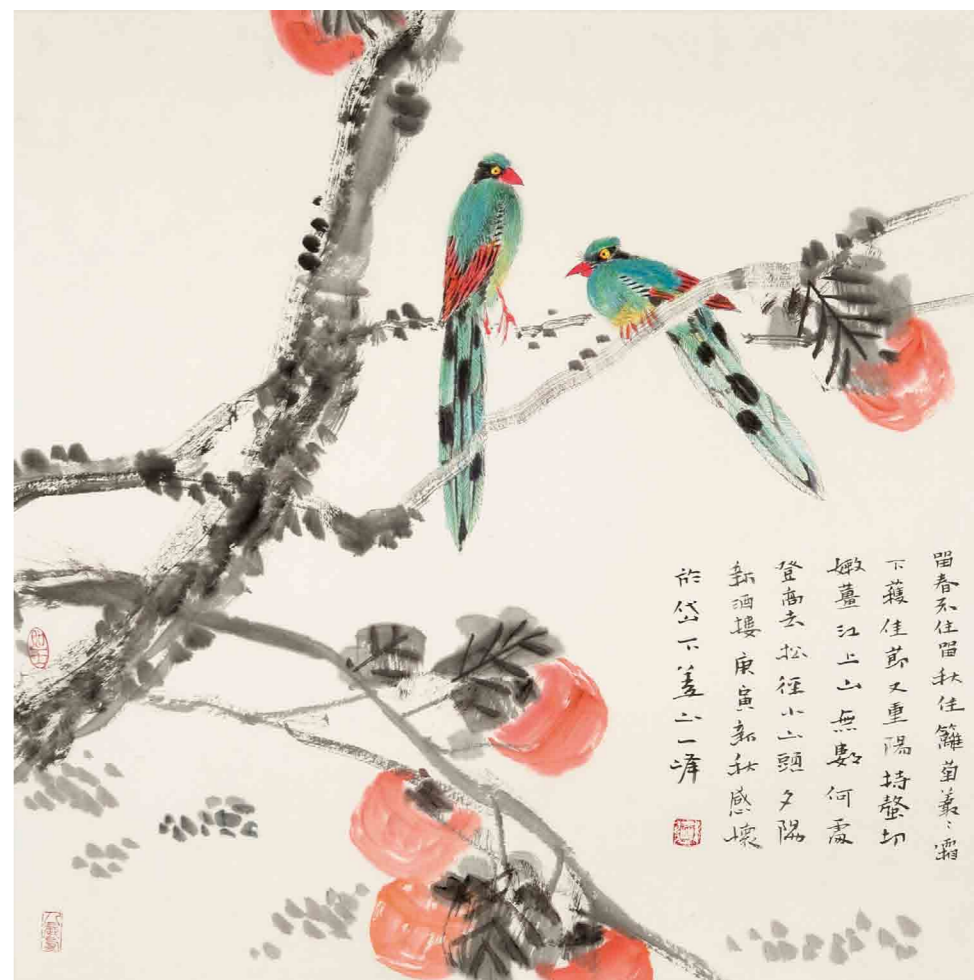 留春不住留秋住籬菊叢〻霜
下護佳節又重陽持螯切
嫩薑江上山無數何處
登高去松徑小山頭夕陽
新酒樓庚寅新秋感懷
於岱下山一峰